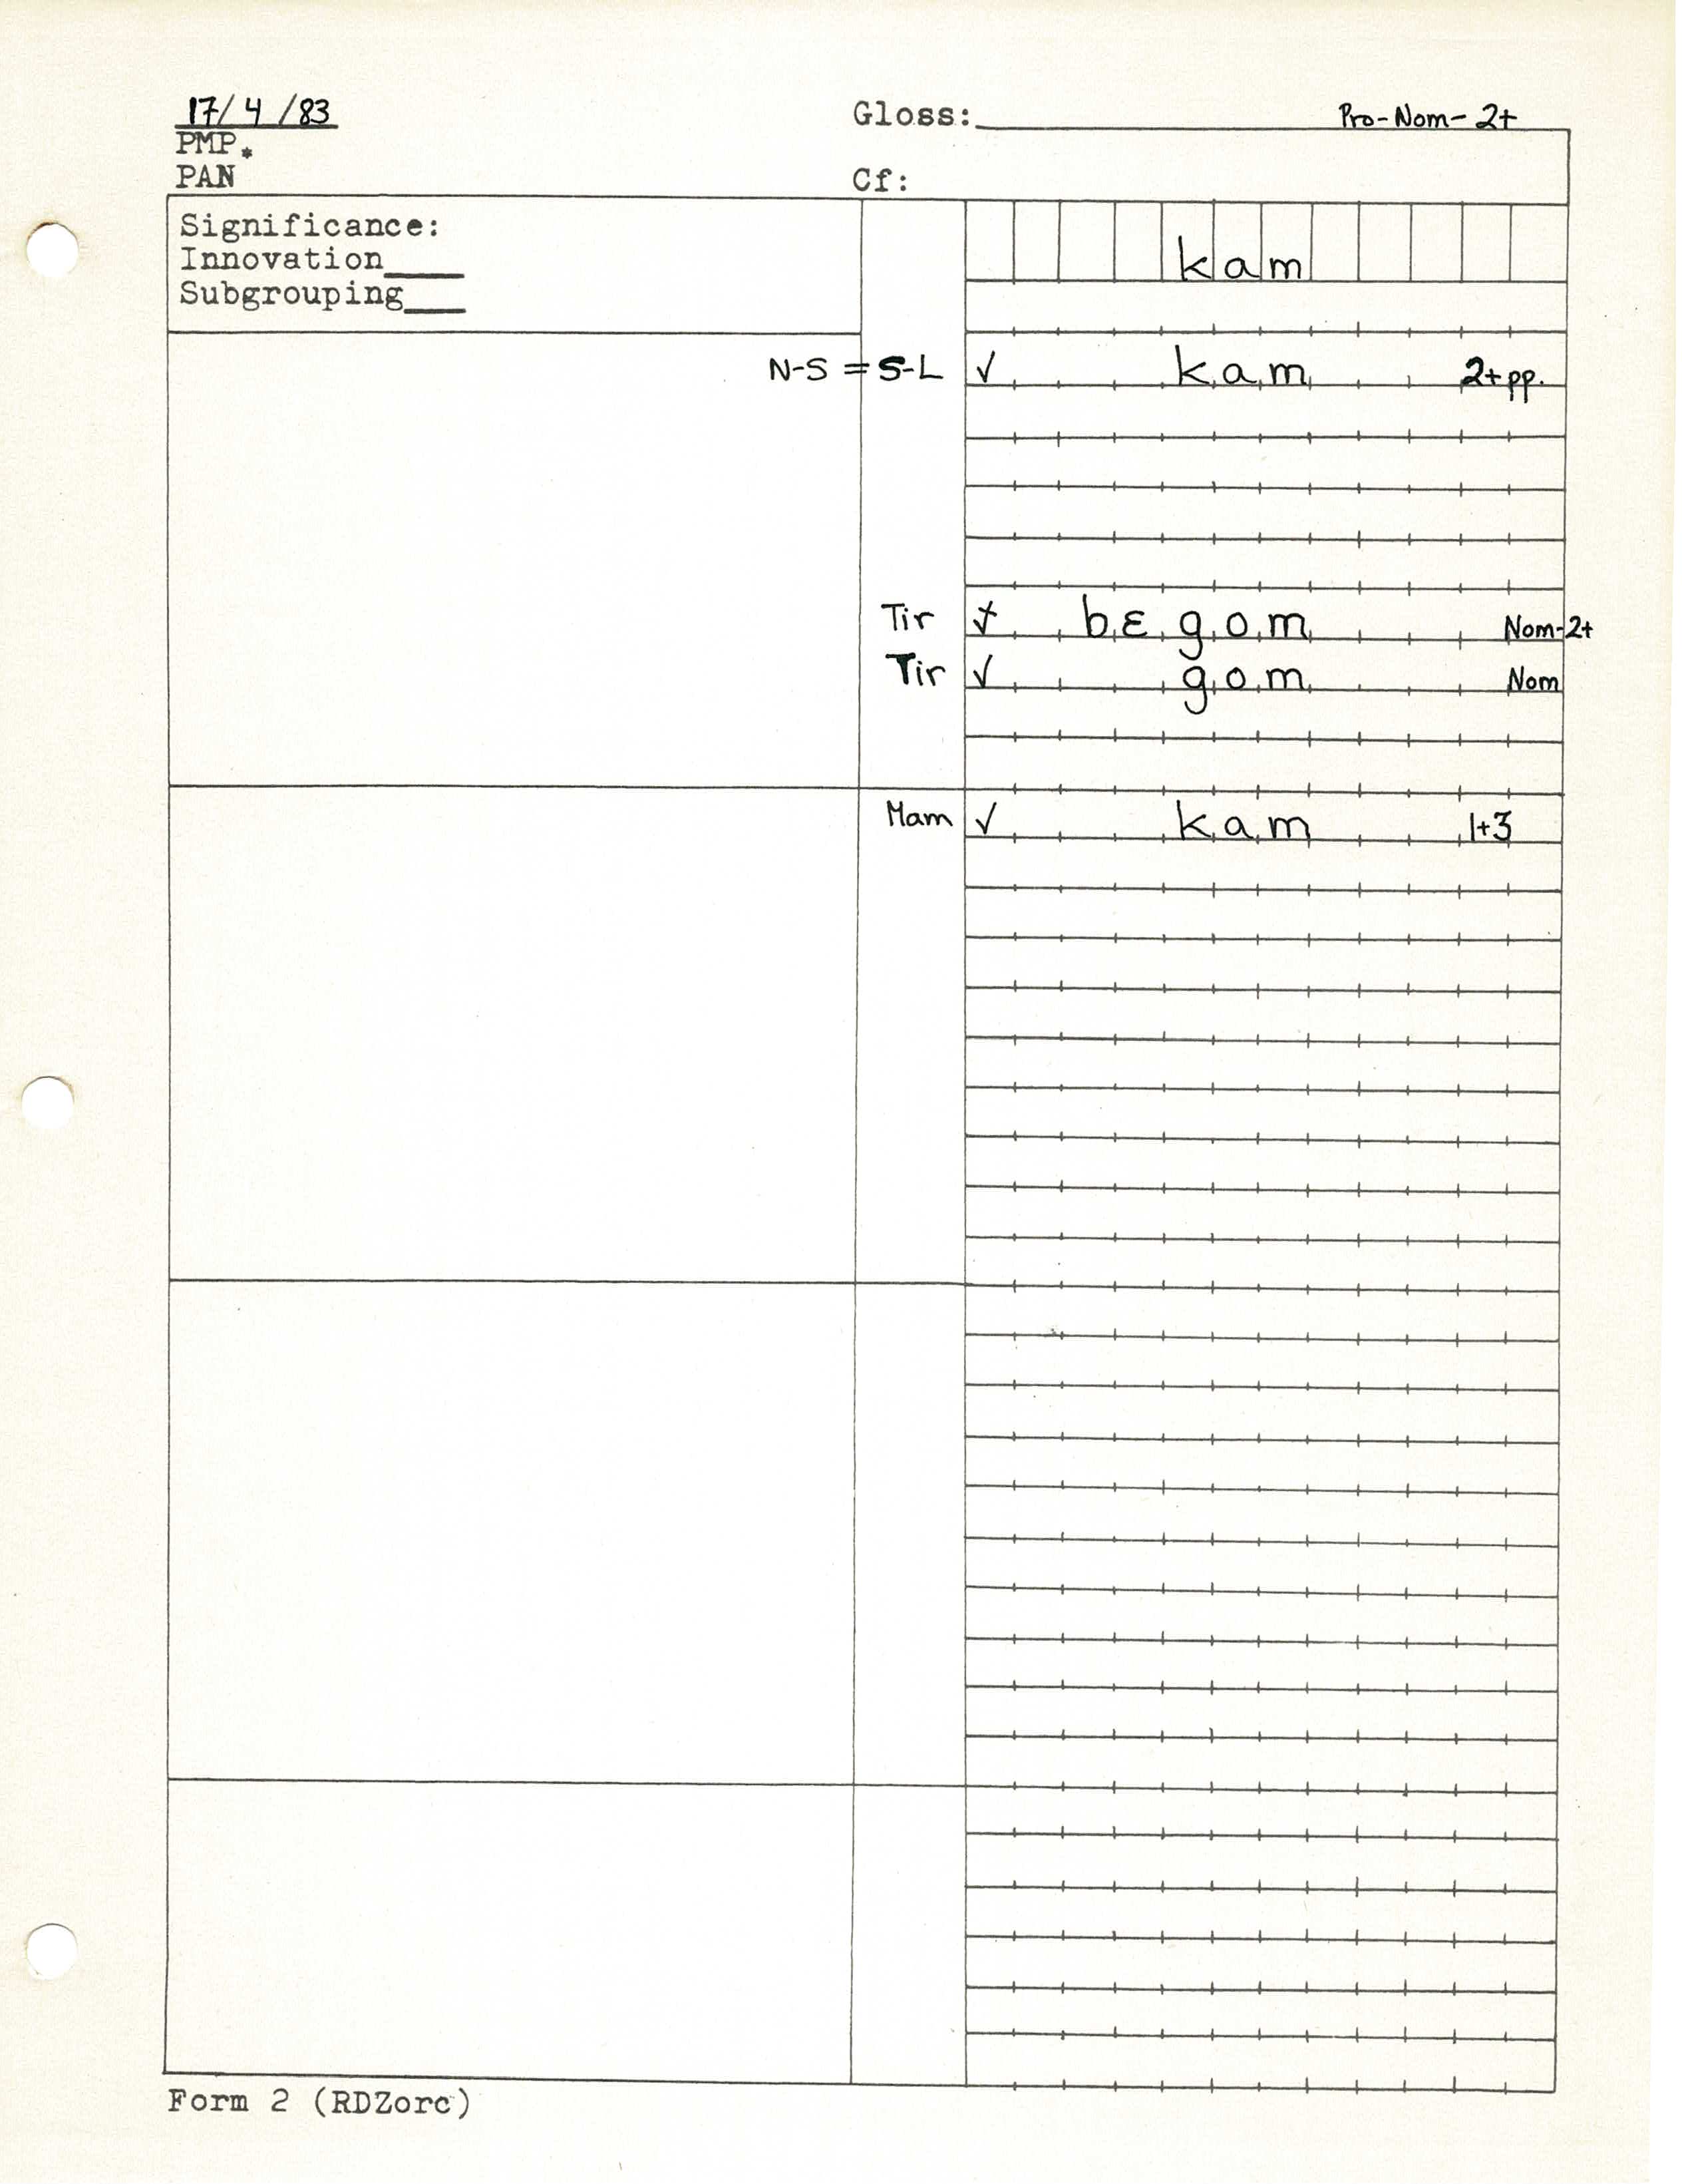 17/4/83 Gloss: Pro-Nom-2+
PMP *
PAN Cf:
Significance:
Innovation____
Subgrouping___
kam
N-S = S-L ✓ kam 2+pp.
Tir ✓ bɛgom Nom-2+
Tir ✓ gom Nom
Mam ✓ kam 1+3
Form 2 (RDZorc)